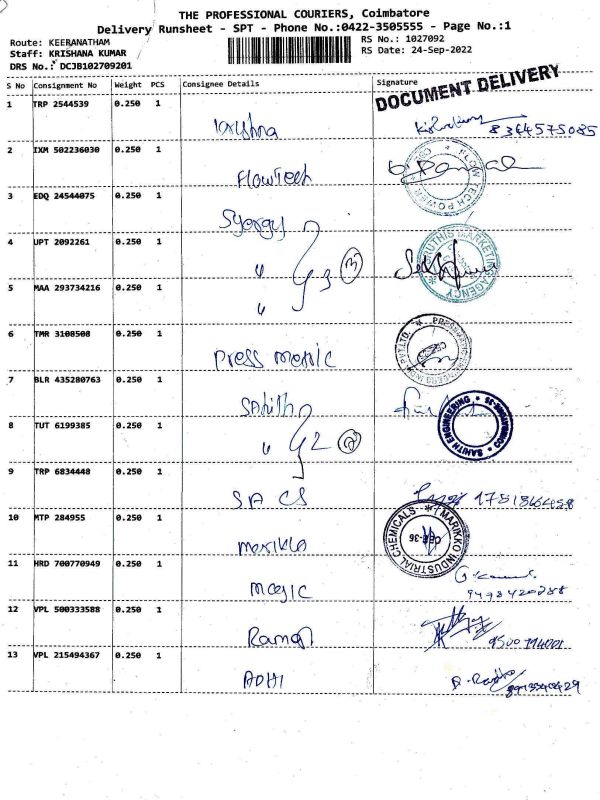 THE PROFESSIONAL COURIERS, Coimbatore
Delivery Runsheet - SPT - Phone No.:0422-3505555 - Page No.:1
Route: KEERANATHAM
RS No.: 1027092
Staff: KRISHANA KUMAR
RS Date: 24-Sep-2022
DRS No.: DCJB102709201
S No Consignment No Weight PCS Consignee Details Signature
DOCUMENT DELIVERY
1 TRP 2544539 0.250 1
krishna 8364575085
2 IXM 502236030 0.250 1
Flowtech
FLOW TECH POWER
3 EDQ 24544075 0.250 1
4 UPT 2092261 0.250 1
" 3 3
SHRUTHIS MARKETING AGENCY
5 MAA 293734216 0.250 1
"
6 TMR 3108508 0.250 1
press
7 BLR 435280763 0.250 1
Sahith
SAHITH ENGINEERING * COIMBATORE-35
8 TUT 6199385 0.250 1
" 2 2
9 TRP 6834448 0.250 1
SACS
10 MTP 284955 0.250 1
MARIKKO INDUSTRIAL CHEMICALS
CBE-36
11 HRD 700770949 0.250 1
magic
12 VPL 500333588 0.250 1
13 VPL 215494367 0.250 1
ADHI